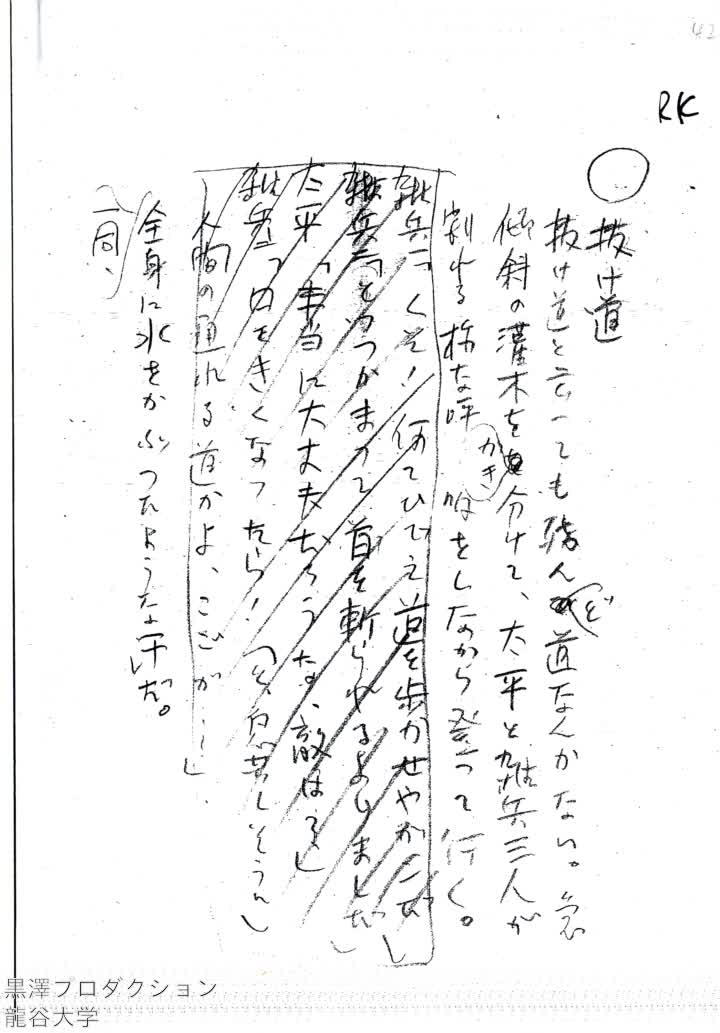 42
RK
抜け道
抜け道と云っても殆んど道なんかない。急
傾斜の灌木をかき分けて、太平と雑兵三人が
割れる様な呼吸をしながら登って行く。
雑兵一「くそ！何てひでえ道を歩かせやがんだ」
雑兵二「とっつかまって首を斬られるよりましだ」
太平「本当に大丈夫だろうな、敵は…」
雑兵一「口をきくなったら！（息苦しそうに）
人間の通れる道かよ、こゞが…」
全身に水をかぶったような汗だ。
一同、
黒澤プロダクション
龍谷大学